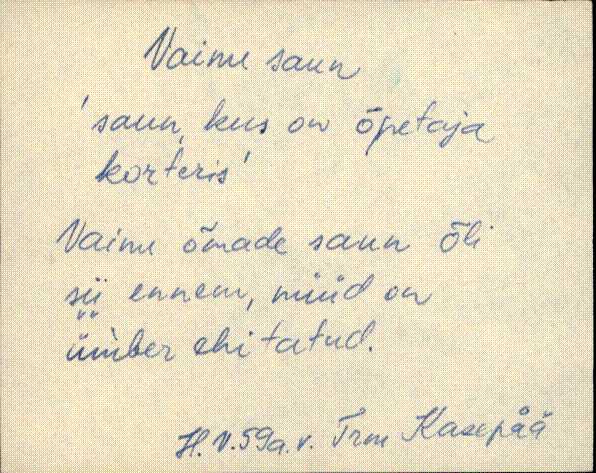 Vaimu saun
'saun, kus on õpetaja
korteris'
Vaimu õmade saun õli
sii ennem, nüüd on
ümber ehitatud.
H. V. 59a. v. Trm Kasepää